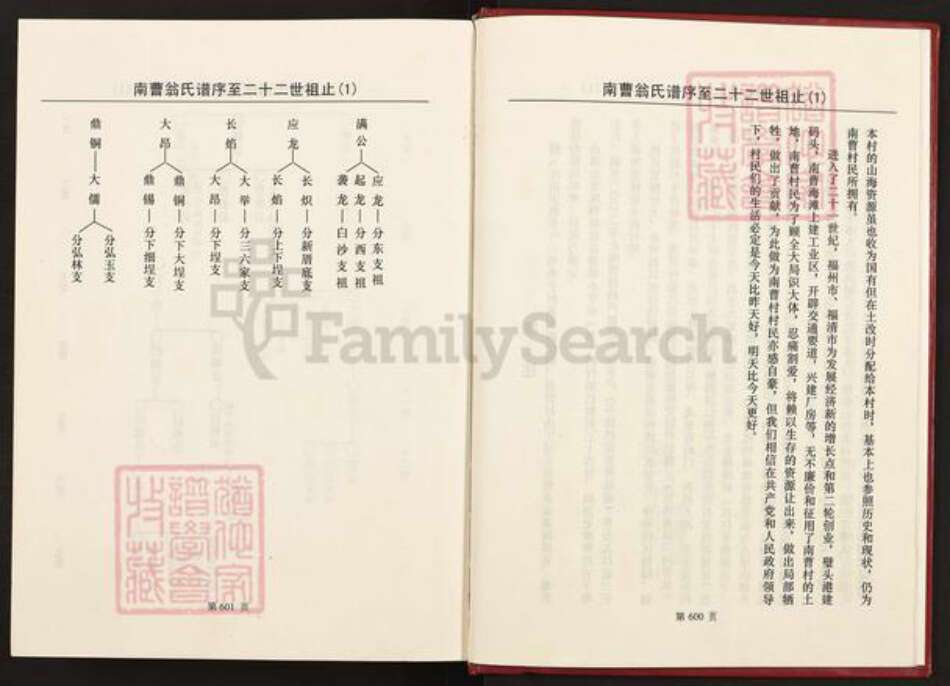 南曹翁氏谱序至二十二世祖止(1)
本村的山海资源虽也收为国有但在土改时分配给本村时，基本上也参照历史和现状，仍为
南曹村民所拥有。
进入了二十一世纪，福州市、福清市为发展经济新的增长点和第二轮创业，壁头港建
码头，南曹海滩上建工业区，开辟交通要道，兴建厂房等，无不廉价和征用了南曹村的土
地，南曹村民为了顾全大局识大体，忍痛割爱，将赖以生存的资源让出来，做出局部牺
牲，做出了贡献，为此做为南曹村村民亦感自豪，但我们相信在共产党和人民政府领导
下，村民们的生活必定是今天比昨天好，明天比今天更好。
第 600 页
南曹翁氏谱序至二十二世祖止(1)
满公
应龙—分东支祖
起龙—分西支祖
袭龙—白沙支祖
应龙
长炽—分新厝底支
长焰—分上下埕支
长焰
大举—分三六家支
大昂—分下埕支
大昂
鼎铜—分下大埕支
鼎锡—分下细埕支
鼎铜—大儒
分弘玉支
分弘林支
第 601 页
猶他家
譜學會
收藏
FamilySearch